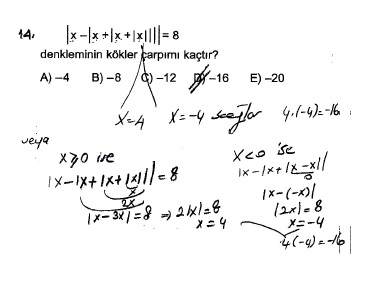 14. |x-|x+|x+|x|||| = 8
denkleminin kökler çarpımı kaçtır?
A) -4 B) -8 C) -12 D) -16 E) -20
x=4 x=-4 4.(-4)=-16
veya
x≥0 ise
|x-|x+|x+|x|||| = 8
x
2x
|x-3x|=8 ⇒ 2|x|=8
x=4
x<0 ise
|x-|x+|x-x||
0
|x-(-x)|
|2x|=8
x=-4
4(-4)=-16